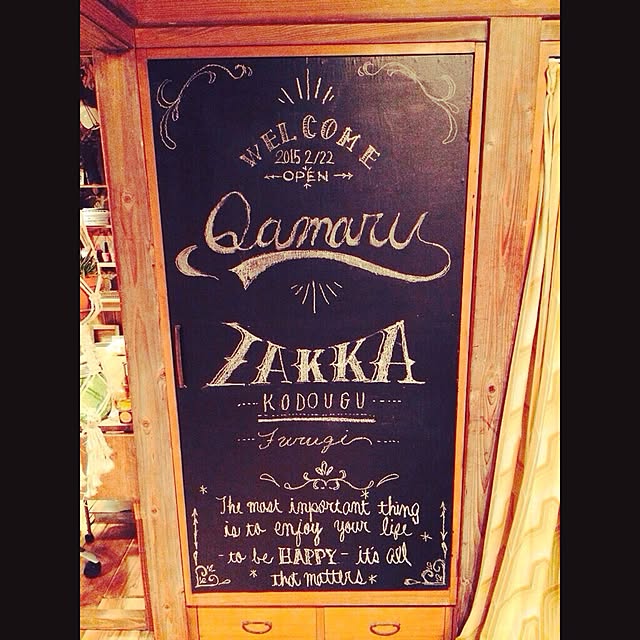 WELCOME
2015 2/22
OPEN
Qamaru
ZAKKA
KODOUGU
Furugi
The most inportant thing
is to enjoy your life
- to be HAPPY - it's all
that matters